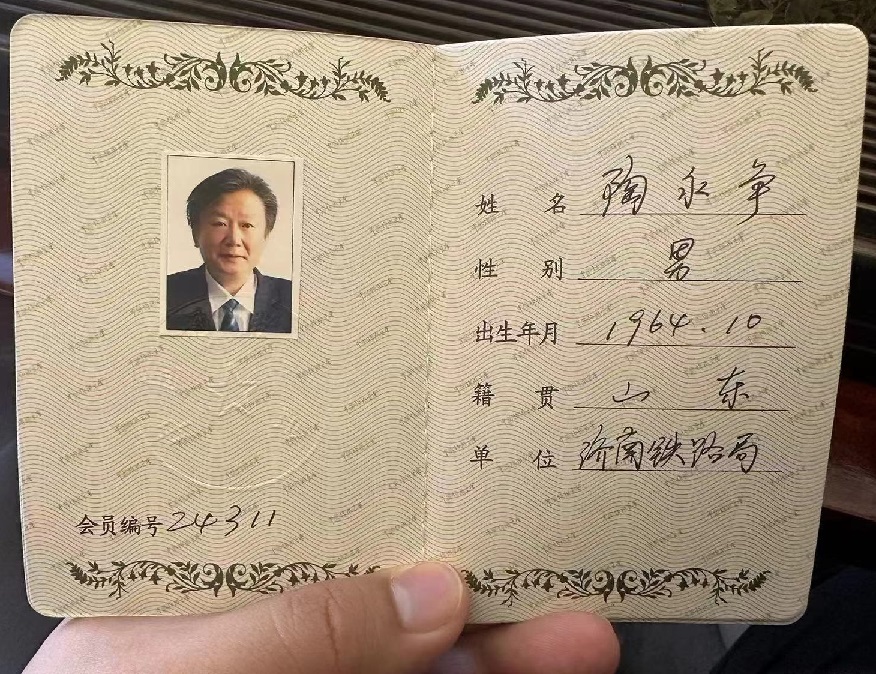 会员编号 24311
姓 名 陶永争
性 别 男
出生年月 1964.10
籍 贯 山东
单 位 济南铁路局